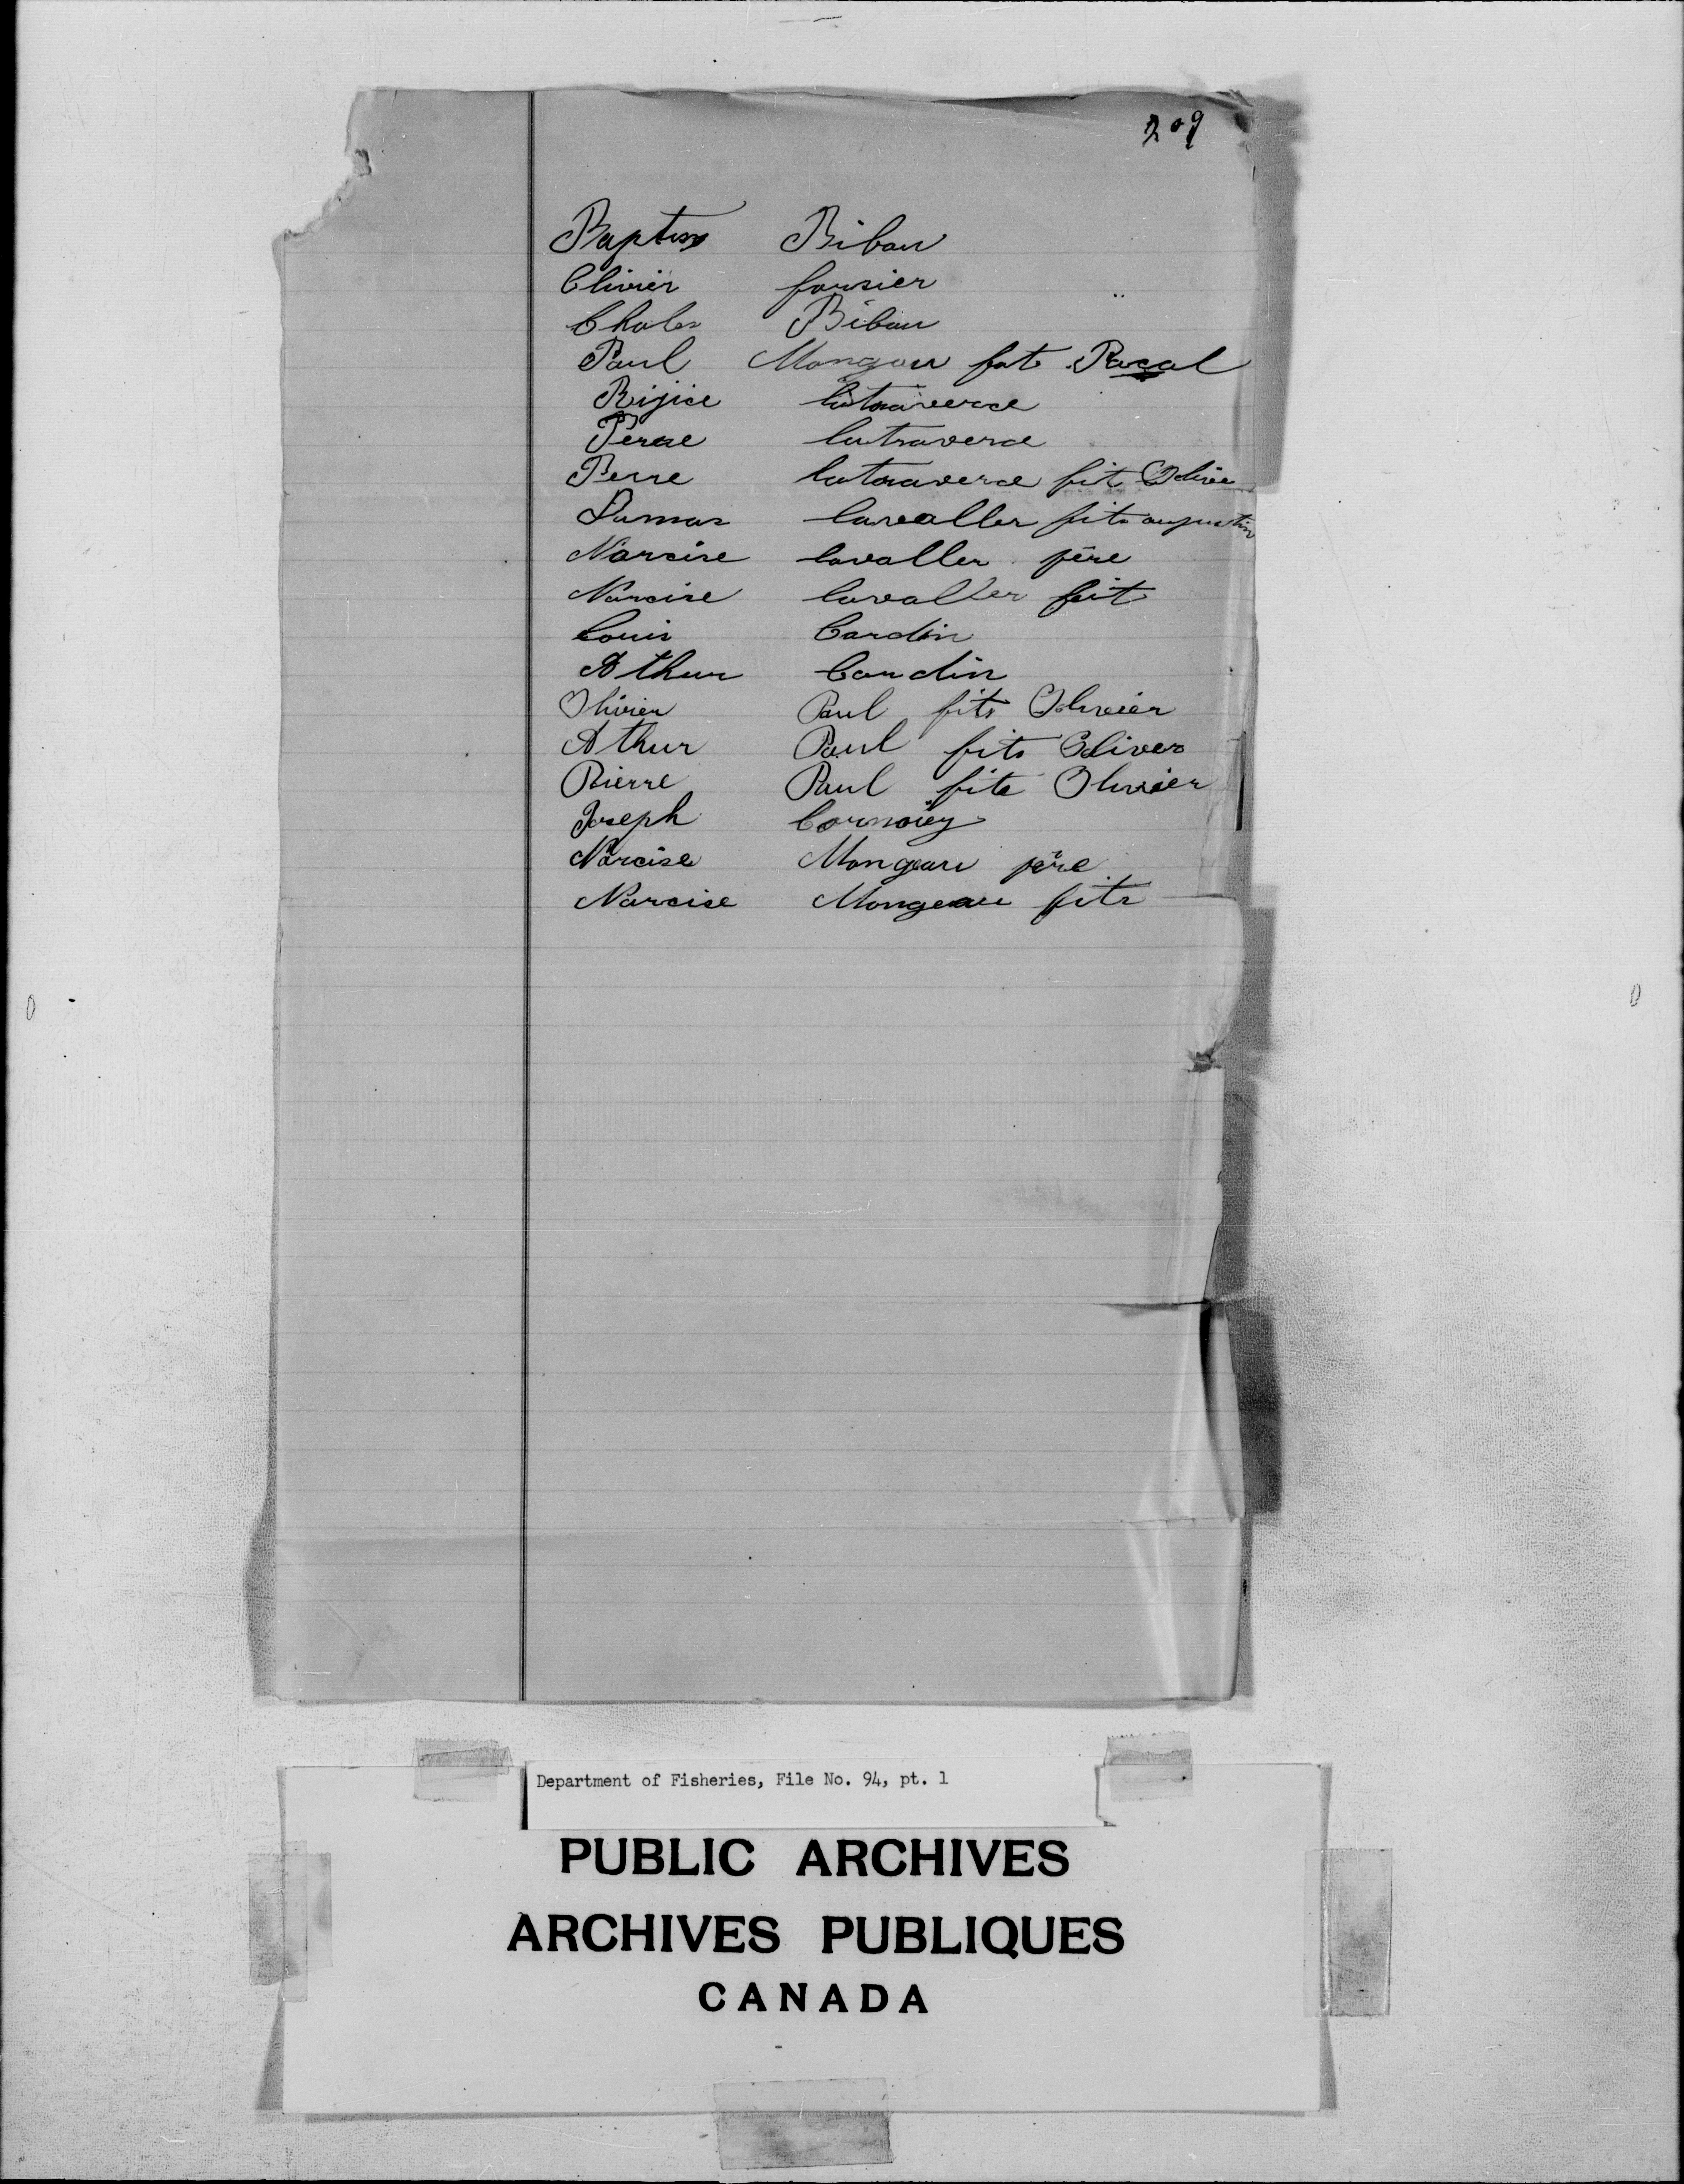 209
Baptiss Bibau
Olivier forsier
Charles Bibau
Paul Mongau fits Pascal
Rijice latraverce
Perrse latraverce
Perre latraverce fit Olivie
Dumas lavaller fits augustin
Narcise lavaller père
Narcise lavaller fit
Louis Cardin
Athur Cardin
Olivier Paul fits Olivier
Athur Paul fits Oliver
Pierre Paul fits Olivier
Joseph
Narcise Mongeau père
Narcise Mongeau fits
Department of Fisheries, File No. 94, pt. 1
PUBLIC ARCHIVES
ARCHIVES PUBLIQUES
CANADA